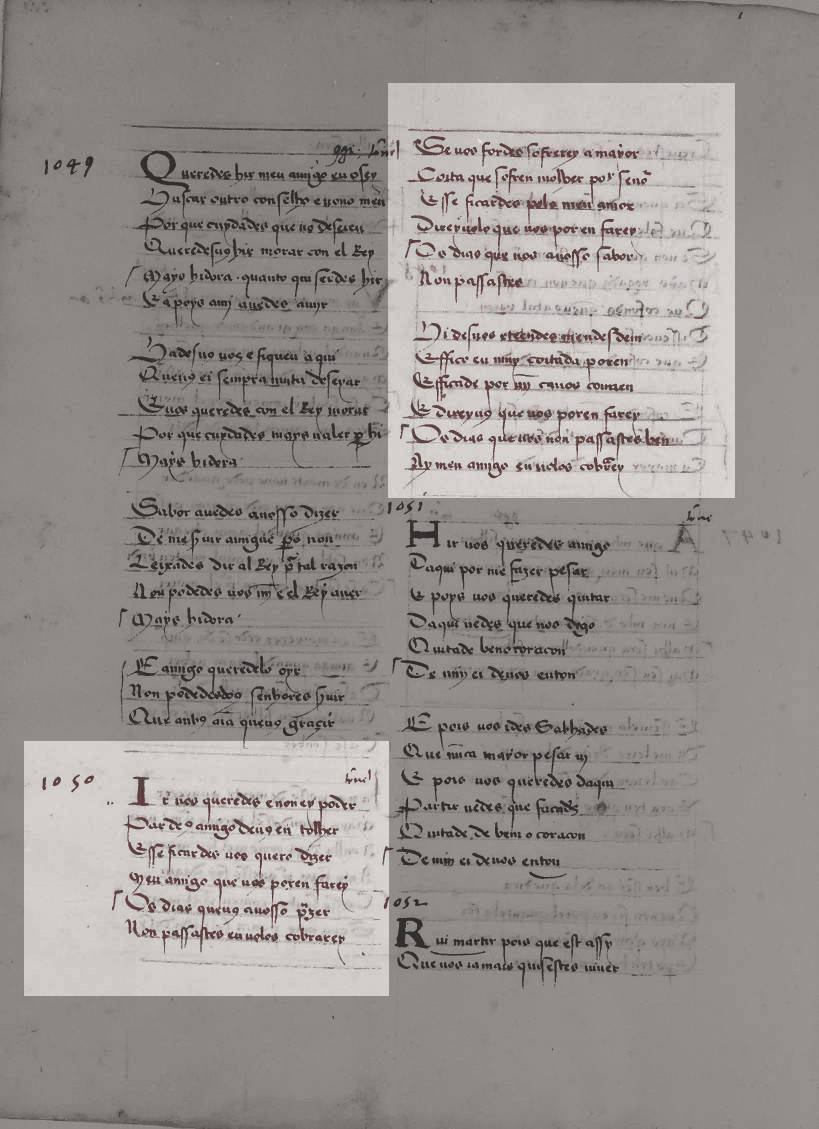 1049
Queredes hir meu amigo eu o sey
Buscar outro conselho e nono meu
Por que cuydades que uo deseieu
Queredesuꝯ hir morar con el Rey
Mays hidora · quanto qui serdes hir
Ca poys amj auedes auijr
Hadesuo uos e fiqueu aqui
Que uꝯ ei sempra muita deseiar
E uos queredes con el Rey morar
Por que cuydades mays ualer per hi
Mays hidora
Sabor auedes auosso dizer
De me seruir amigue pero non
Leixades dir al Rey por tal razon
Non podedes uos e el Rey auer
Mays hidora
E amigo queredelo oyr
Non podedes dous senhores seruir
Que antꝯ aia que uꝯ graçir
1050
Ir uos queredes e non ey poder
Par deꝯ amigo deuꝯ en tolher
E sse ficardes uos quero dizer
Meu amigo que uos poren farey
Os dias que uꝯ auosso przer
Non passastes eu uolos cobrarey
Se uos fordes sofrerey a mayor
Coita que sofren molher por senor
E sse ficardes pelo meu amor
Direyuolo que uos poren farey
Os dias que uos auosso sabor
Non passastes
Hi desuos e mendes dem
E ffico eu muy coitada poren
E fficade por mj ca uos conuen
E direyuꝯ que uos poren farey
Os dias que uos non passastes ben
Ay meu amigo eu uolos cobrey
1051
Hir uos queredes amigo
Daqui por me fazer pesar
E poys uos queredes quitar
Daqui uedes que uos digo
Quitade ben o coracon
De mj ei deuos enton
E pois uos ides Sabhades
Que nunca mayor pesar uj
E pois uos queredes daqui
Partir uedes que façades
Quitade de ben o coracon
De mjn ei deuos enton
1052
Rui martir pois que est assy
Que uos iamais quisestes uiuer